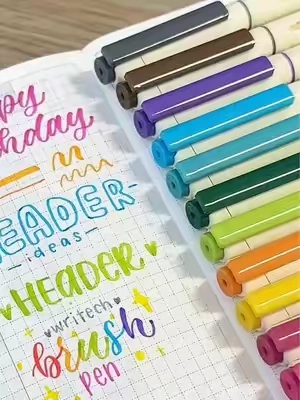 ppy
thday
HEADER
ideas
HEADER
writech
brush
pen